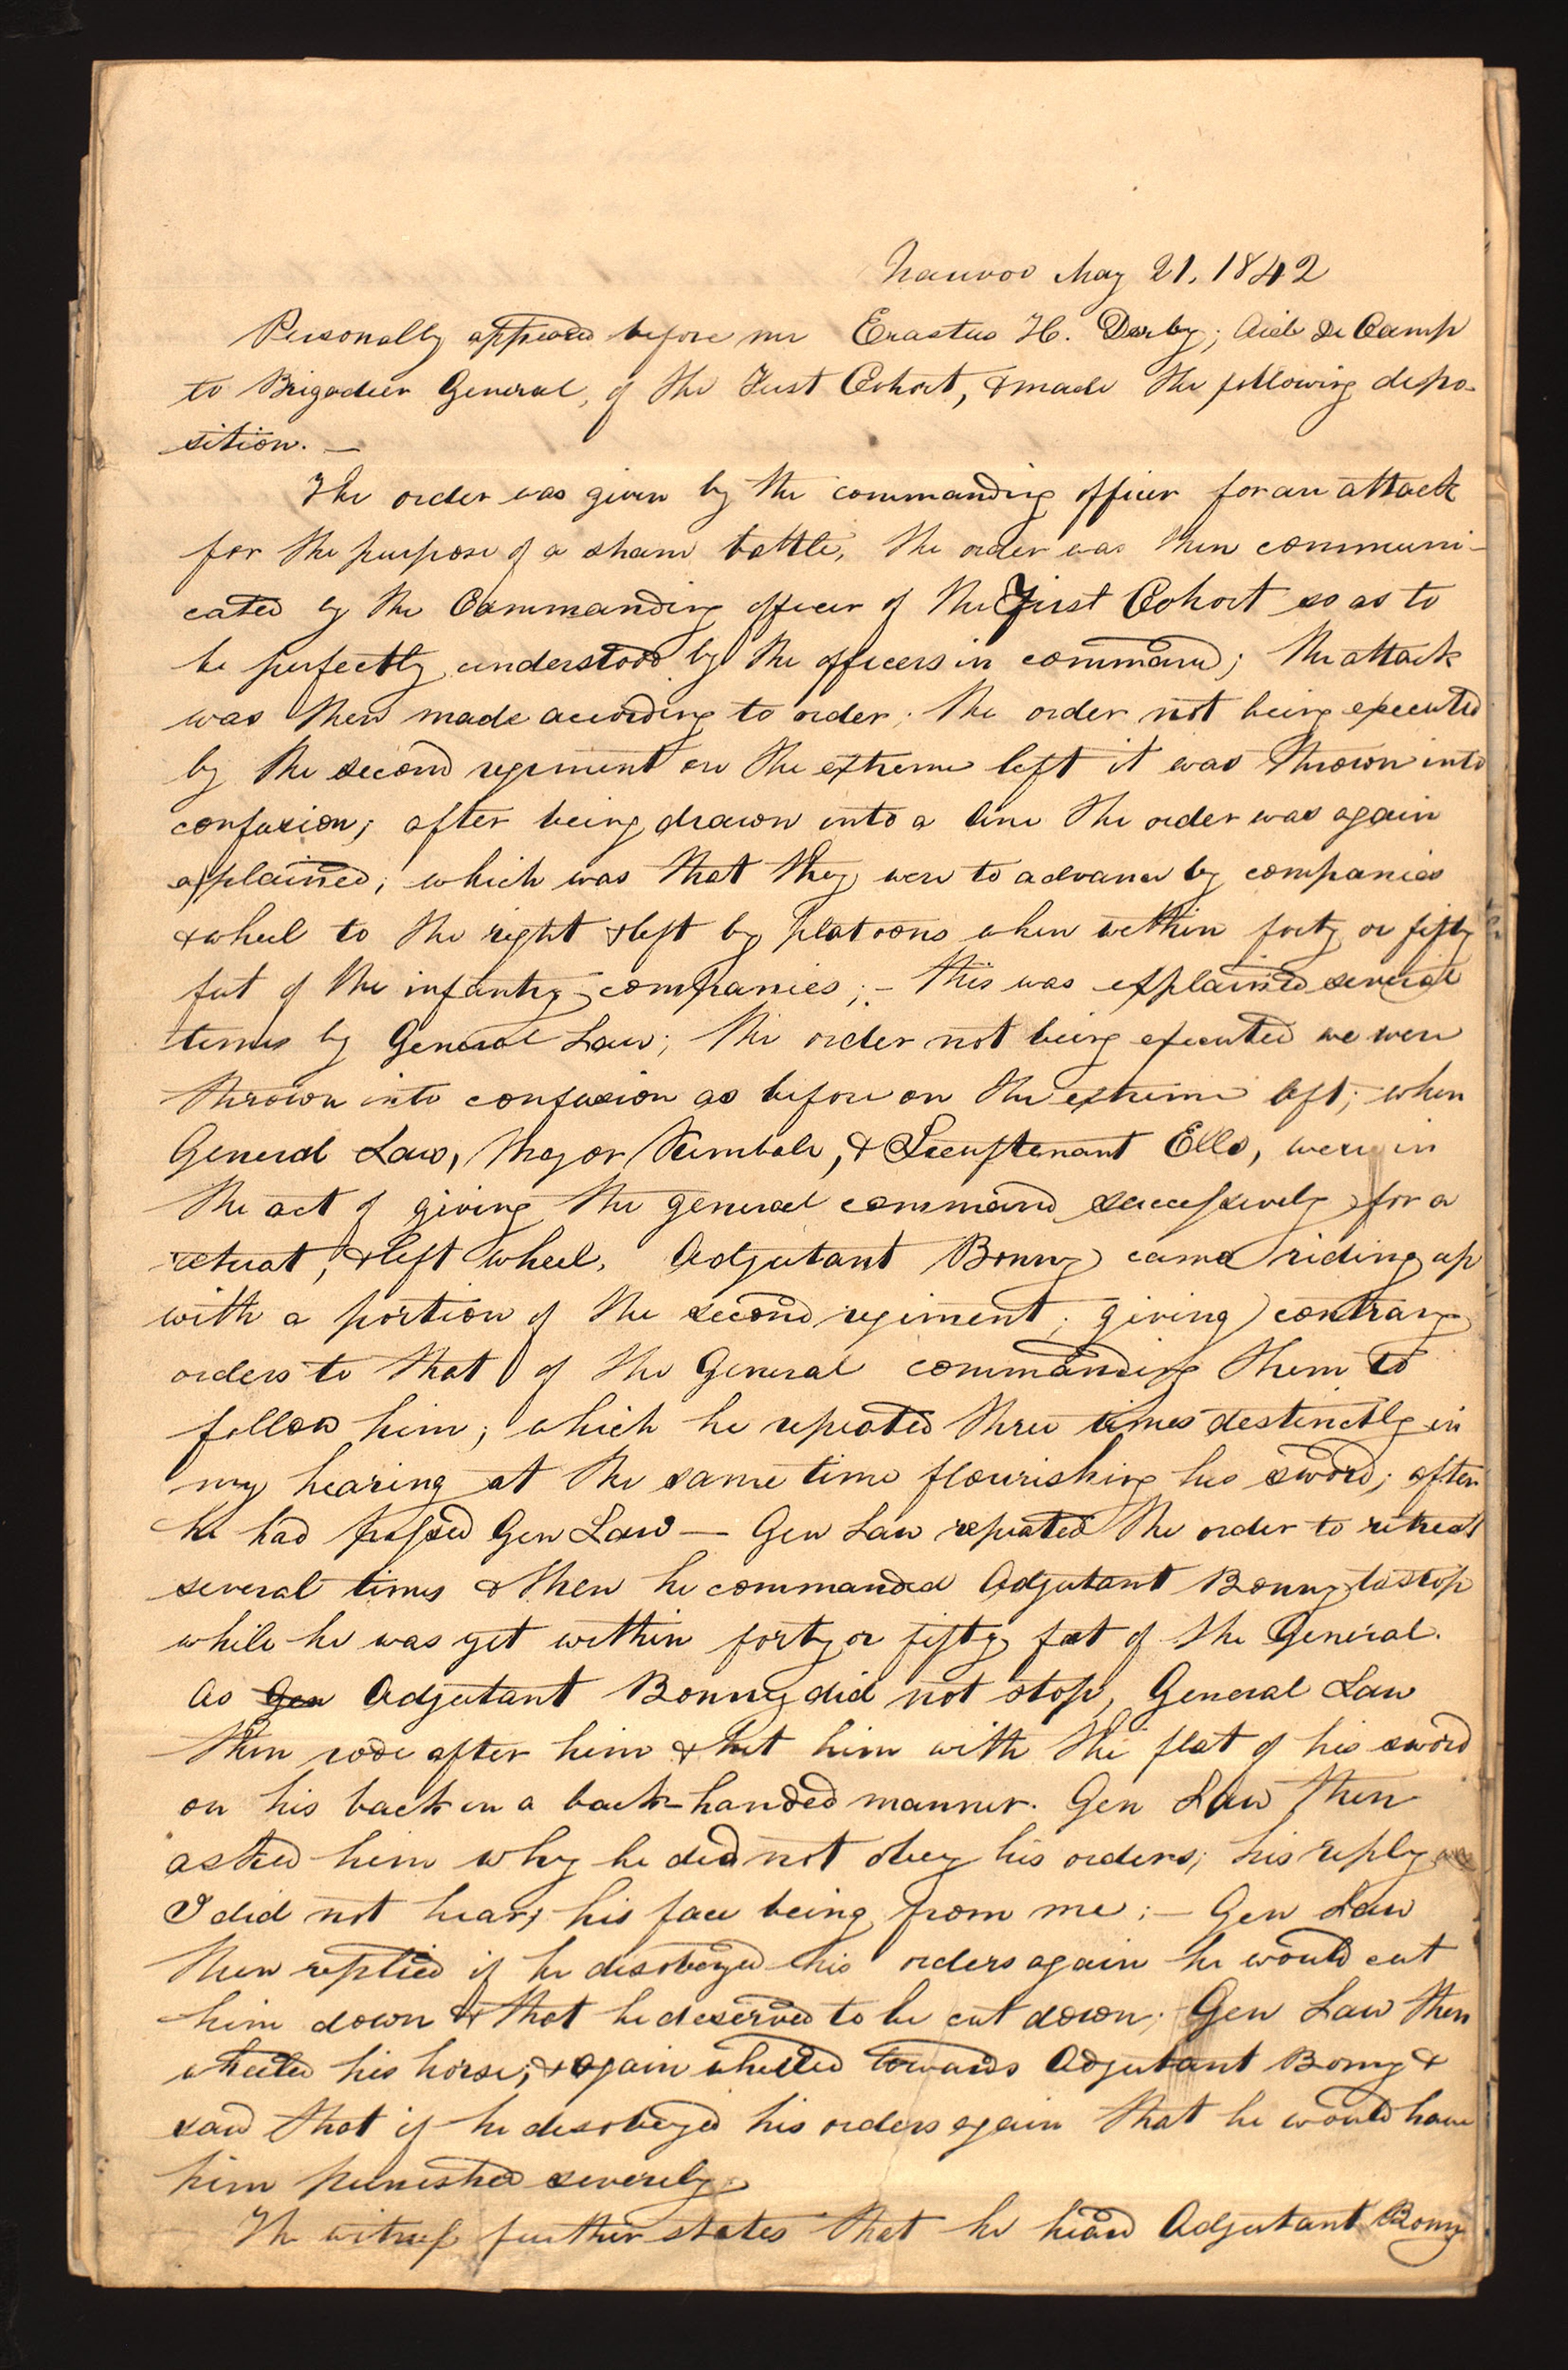 Nauvoo May 21, 1842
Personally appeared before me Erastus H. Derby; Aid De Camp
to Brigadier General, of the First Cohort, & made the following depo-
sition. —
The order was given by the commanding officer for an attack
for the purpose of a sham battle, the order was then communi-
cated by the Commanding officer of the First Cohort so as to
be perfectly understood by the officers in command; the attack
was then made according to order; the order not being executed
by the second regiment on the extreme left it was thrown into
confusion; after being drawn into a line the order was again
explained; which was that they were to advance by companies
& wheel to the right & left by platoons when within forty or fifty
feet of the infantry companies; — this was explained several
times by General Law; the order not being executed we were
thrown into confusion as before on the extreme left; when
General Law, Major Kimbale, & Lieuftenant Ells, were in
the act of giving the general command successively for a
retreat, & left wheel, Adjutant Bonny came riding up
with a portion of the second regiment; giving contrary
orders to that of the General commanding them to
follow him; which he repeated three times destinctly in
my hearing at the same time flourishing his sword; after
he had passed Gen Law — Gen Law repeated the order to retreat
several times & then he commanded Adjutant Bonny to stop
while he was yet within forty or fifty feet of the General.
As Gen Adjutant Bonny did not stop, General Law
then rode after him & hit him with the flat of his sword
on his back in a back-handed manner. Gen Law then
asked him why he did not obey his orders; his reply
I did not hear, his face being from me; — Gen Law
then replied if he disobeyed his orders again he would cut
him down & that he deserved to be cut down; Gen Law then
wheeled his horse, & again wheeled towards Adjutant Bonny &
said that if he disobeyed his orders again that he would have
him punished severely.
The witness further states that he heard Adjutant Bonny